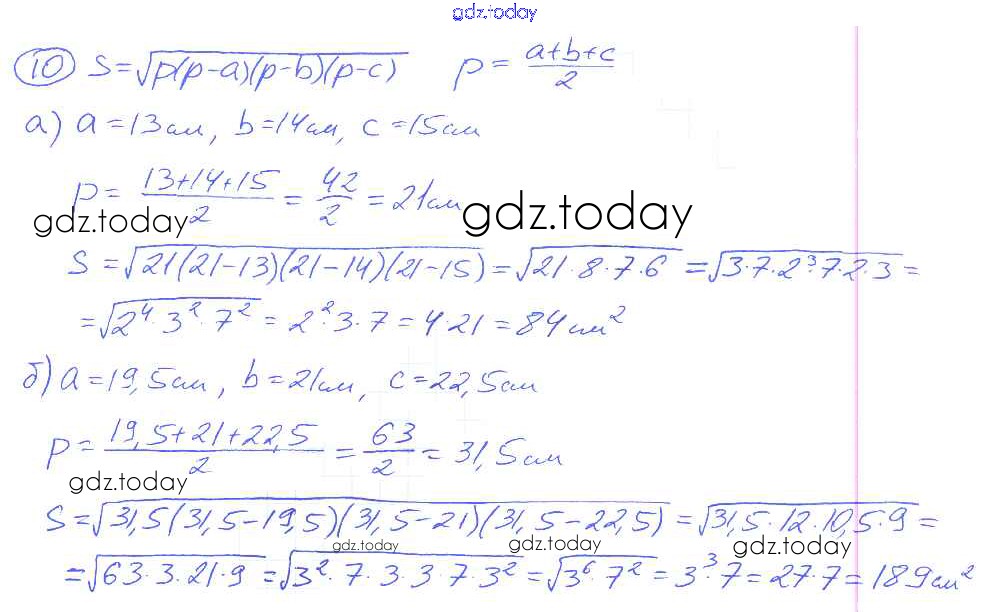 gdz.today
10 S=√p(p-a)(p-b)(p-c) p= (a+b+c)/2
а) a=13см, b=14см, c=15см
p= (13+14+15)/2 = 42/2 =21см
gdz.today gdz.today
S=√21(21-13)(21-14)(21-15)=√21·8·7·6 =√3·7·2³·7·2·3=
=√2⁴·3²·7² = 2²·3·7=4·21=84см²
б) a=19,5см, b=21см, c=22,5см
p= (19,5+21+22,5)/2 = 63/2 =31,5см
gdz.today
S=√31,5(31,5-19,5)(31,5-21)(31,5-22,5)=√31,5·12·10,5·9=
gdz.today gdz.today gdz.today
=√63·3·21·9=√3²·7·3·3·7·3²=√3⁶·7²=3³·7=27·7=189см²